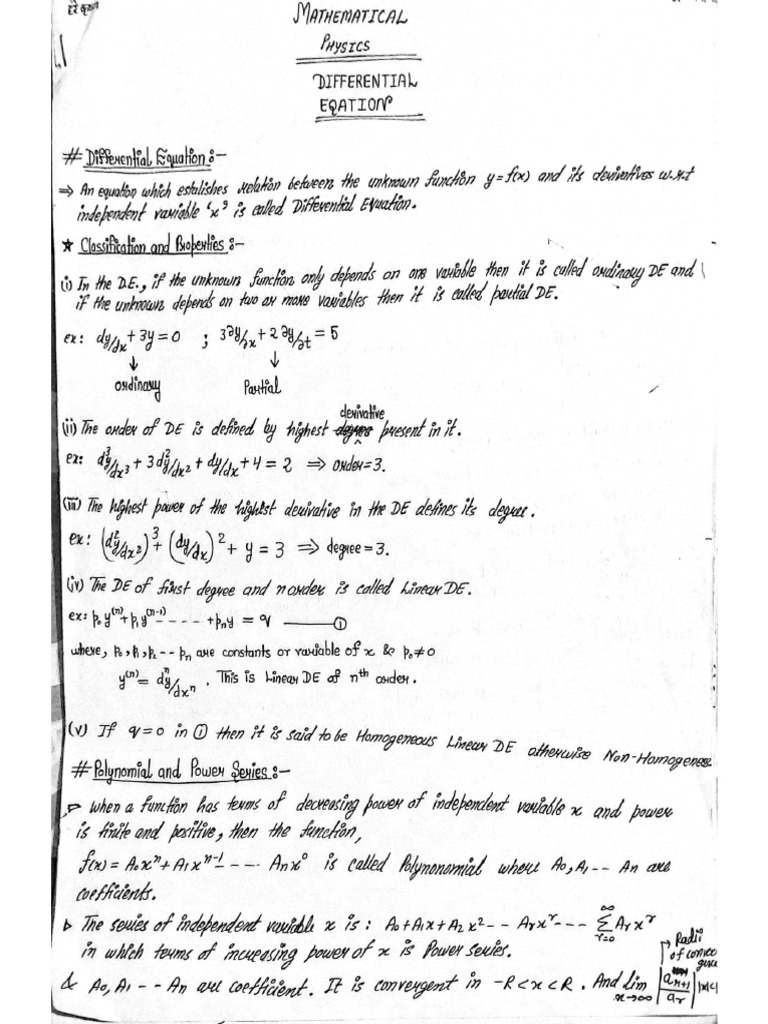 हरे कृष्ण
MATHEMATICAL
PHYSICS
DIFFERENTIAL
EQATION
# Differential Equation:-
⇒ An equation which estalishes relation between the unknown function y=f(x) and its derivatives w.r.t
independent variable 'x' is called Differential Equation.
★ Classification and Properties:-
(i) In the D.E., if the unknown function only depends on one variable then it is called ordinary DE and
if the unknown depends on two or more variables then it is called partial DE.
ex: dy/dx + 3y = 0 ; 3∂y/∂x + 2∂y/∂t = 5
↓ ↓
ordinary Partial
derivative
(ii) The order of DE is defined by highest degree present in it.
ex: d³y/dx³ + 3d²y/dx² + dy/dx + 4 = 2 ⇒ order = 3.
(iii) The highest power of the highest derivative in the DE defines its degree.
ex: (d²y/dx²)³ + (dy/dx)² + y = 3 ⇒ degree = 3.
(iv) The DE of first degree and n order is called Linear DE.
ex: p₀y⁽ⁿ⁾+p₁y⁽ⁿ⁻¹⁾ - - - - - +pₙy = q ——— ①
where, p₀, p₁, p₂ -- pₙ are constants or variable of x & p₀≠0
y⁽ⁿ⁾ = dⁿy/dxⁿ . This is Linear DE of nth order.
(v) If q=0 in ① then it is said to be Homogeneous Linear DE otherwise Non-Homogeneous
# Polynomial and Power Series:-
▷ When a function has terms of decreasing power of independent variable x and power
is finite and positive, then the function,
f(x) = A₀xⁿ+A₁xⁿ⁻¹ - - - - Aₙx⁰ is called Polynonomial where A₀, A₁ -- Aₙ are
coefficients.
▷ The series of independent variable x is: A₀+A₁x+A₂x² -- Aᵣxʳ --- ∞∑r=0 Aᵣxʳ
in which terms of increasing power of x is Power series.
→ Radii
of conver
gence
& A₀, A₁ -- Aₙ are coefficient. It is convergent in -R<x<R. And Lim x→∞ |aᵣ₊₁/aᵣ| |x|<1